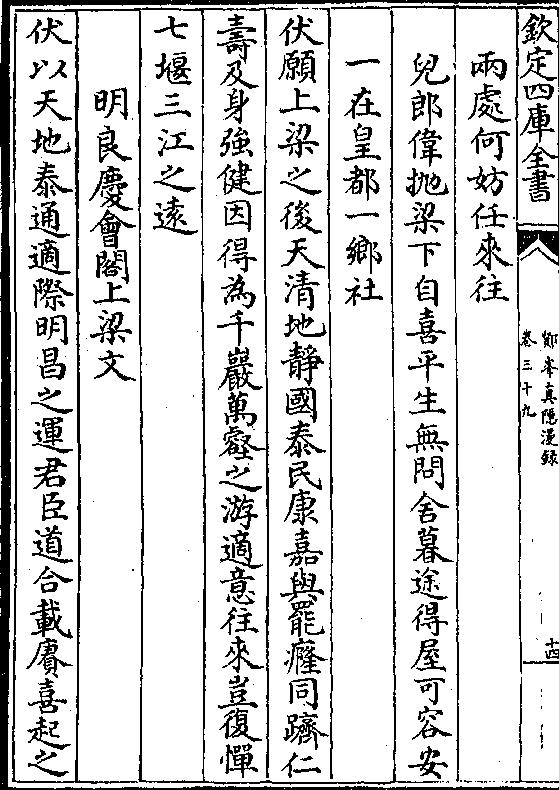 欽定四庫全書
鄮峯真隱漫録
卷三十九
十四
兩處何妨任來往
兒郎偉抛梁下自喜平生無問舍暮途得屋可容安
一在皇都一鄉社
伏願上梁之後天清地靜國泰民康嘉與罷癃同躋仁
壽及身強健因得為千巖萬壑之游適意往來豈復憚
七堰三江之遠
明良慶會閣上梁文
伏以天地泰通適際明昌之運君臣道合載賡喜起之